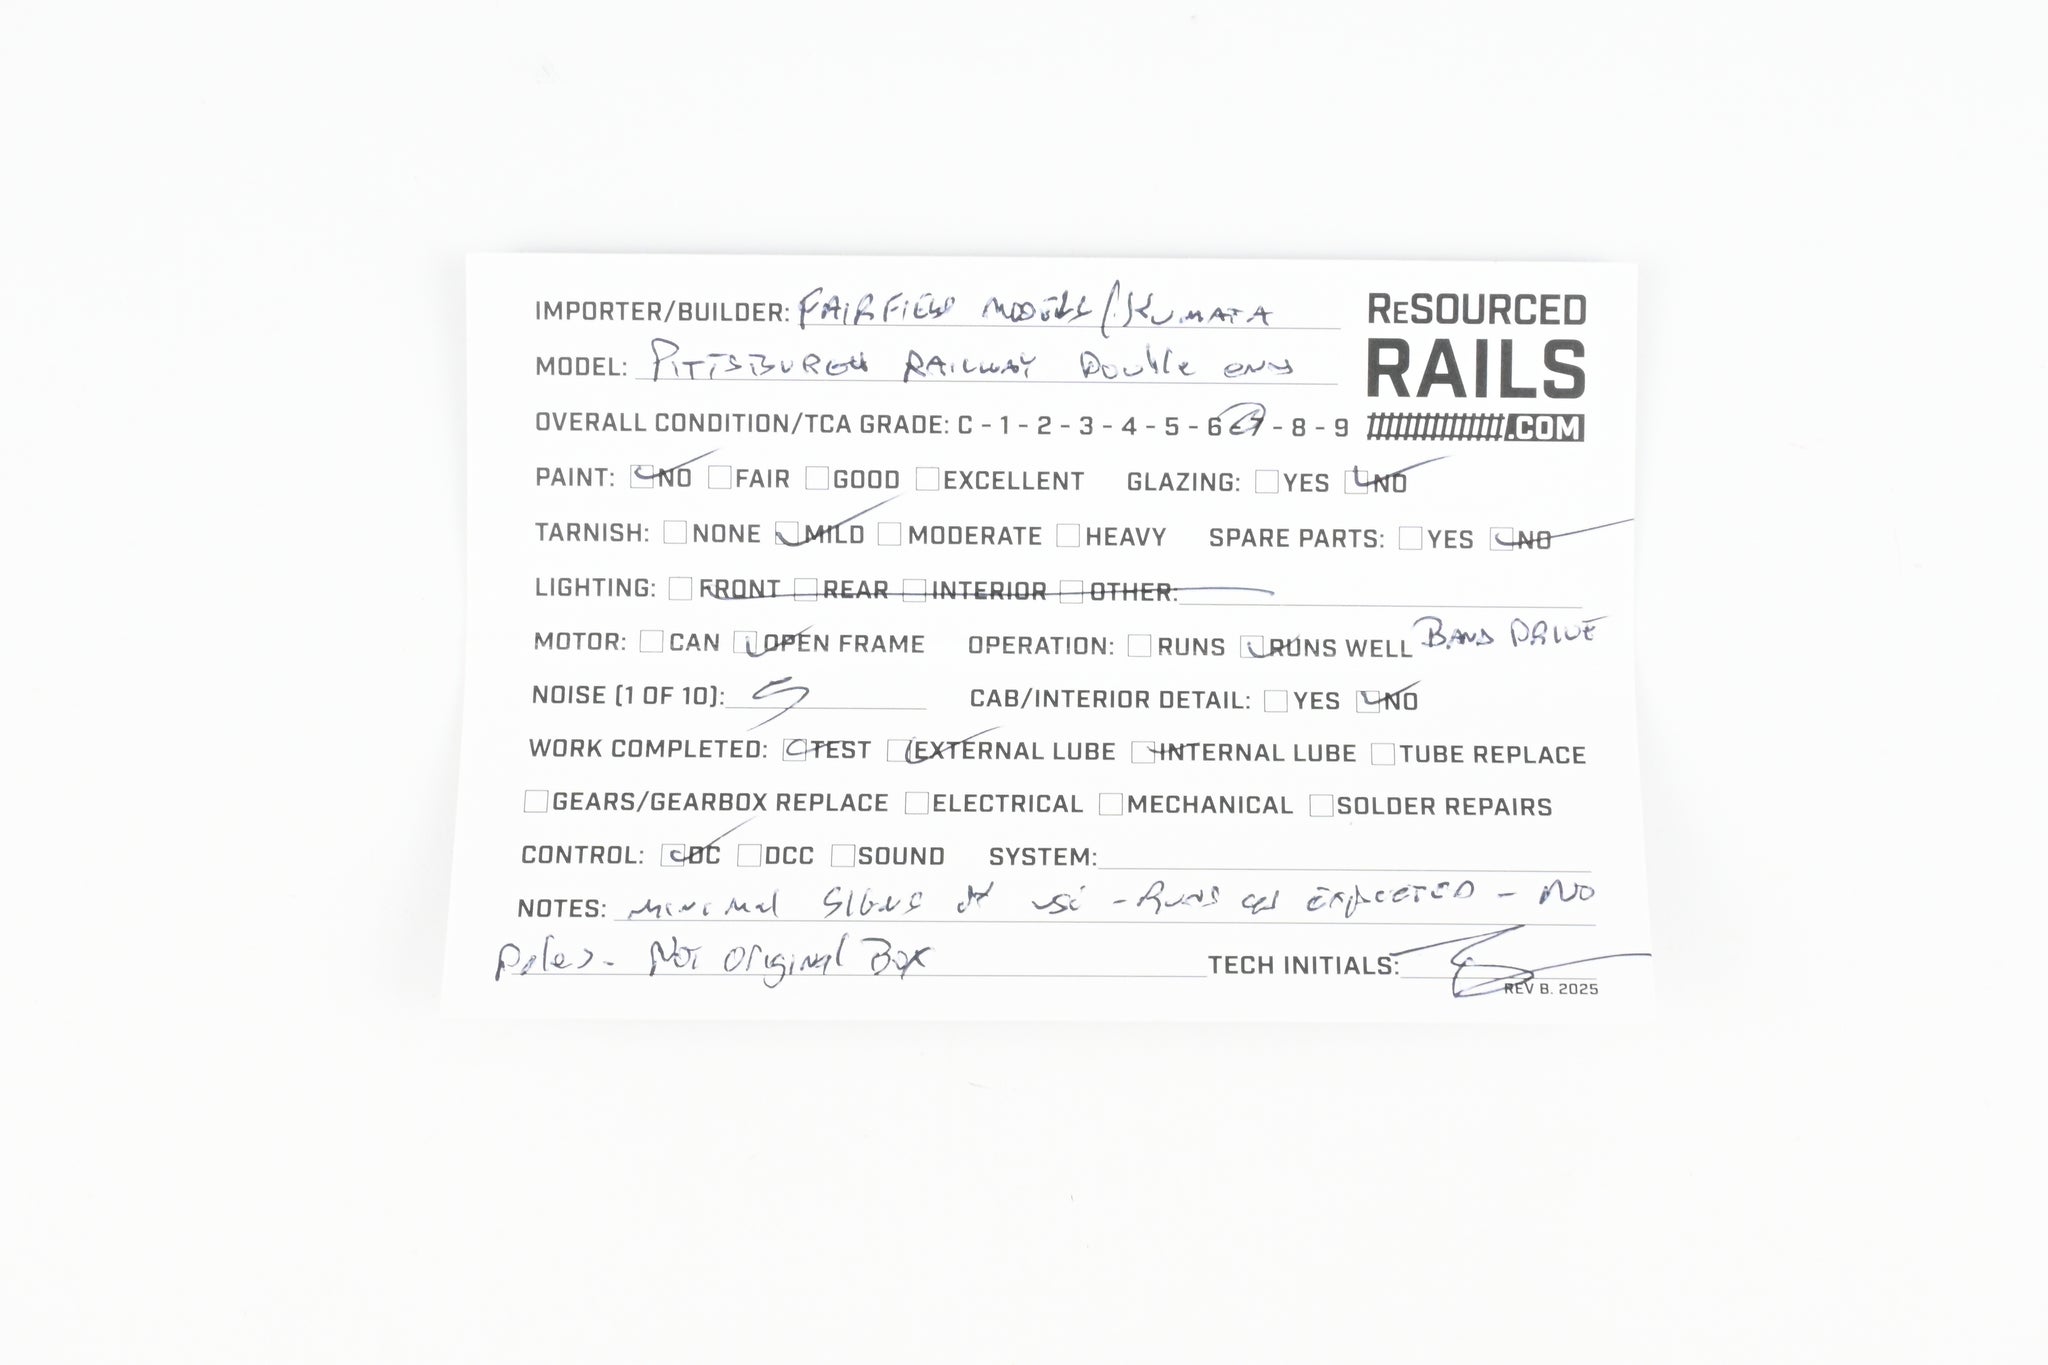 IMPORTER/BUILDER: FAIRFIELD MODELS/KUMATA
RESOURCED
RAILS
.COM
MODEL: PITTSBURGH RAILWAY Double END
OVERALL CONDITION/TCA GRADE: C - 1 - 2 - 3 - 4 - 5 - 6 - 7 - 8 - 9
PAINT: NO FAIR GOOD EXCELLENT GLAZING: YES NO
TARNISH: NONE MILD MODERATE HEAVY SPARE PARTS: YES NO
LIGHTING: FRONT REAR INTERIOR OTHER:
MOTOR: CAN OPEN FRAME OPERATION: RUNS RUNS WELL BAND DRIVE
NOISE (1 OF 10): 5 CAB/INTERIOR DETAIL: YES NO
WORK COMPLETED: TEST EXTERNAL LUBE INTERNAL LUBE TUBE REPLACE
GEARS/GEARBOX REPLACE ELECTRICAL MECHANICAL SOLDER REPAIRS
CONTROL: DC DCC SOUND SYSTEM:
NOTES: MINIMAL SIGNS of use - RUNS as EXPECTED - NO
Poles - Not Original Box TECH INITIALS:
REV B. 2025